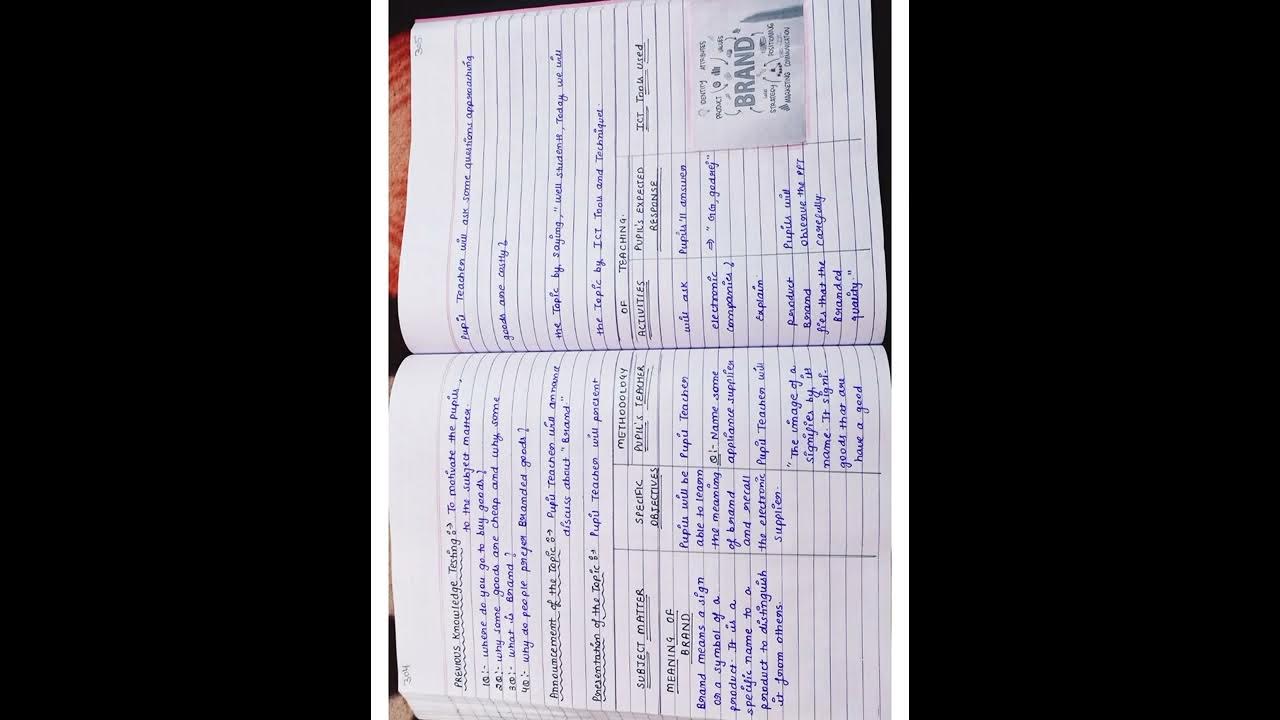 304
PREVIOUS Knowledge Testing :→ To motivate the pupils, Pupil Teacher will ask some questions approaching
to the subject matter.
1Q:- where do you go to buy goods?
2Q:- why some goods are cheap and why some goods are costly?
3Q:- what is Brand?
4Q:- why do people prefer Branded goods?
Announcement of the Topic :→ Pupil Teacher will announce the Topic by saying, "well students, Today we will
discuss about "Brand."
Presentation of the Topic :→ Pupil Teacher will present the Topic by ICT Tools and Techniques.
SUBJECT MATTER
MEANING OF
BRAND
Brand means a sign
or a symbol of a
product. It is a
specific name to a
product to distinguish
it from others.
SPECIFIC
OBJECTIVES
Pupils will be
able to learn
the meaning
of brand
and recall
the electronic
supplier.
METHODOLOGY OF TEACHING.
PUPIL'S TEACHER ACTIVITIES
Pupil Teacher will ask
Q:- Name some electronic
appliance supplier companies?
Pupil Teacher will explain.
"The image of a product
signifies by its Brand
name. It signi- fies that the
goods that are Branded
have a good quality."
PUPIL'S EXPECTED
RESPONSE
Pupils'll answer
⇒ "GG, godrej"
Pupils will
observe the PPT
carefully.
305
ICT Tools Used
IDENTITY ATTRIBUTES
PRODUCT VALUES
BRAND
STRATEGY POSITIONING
MARKETING COMMUNICATION